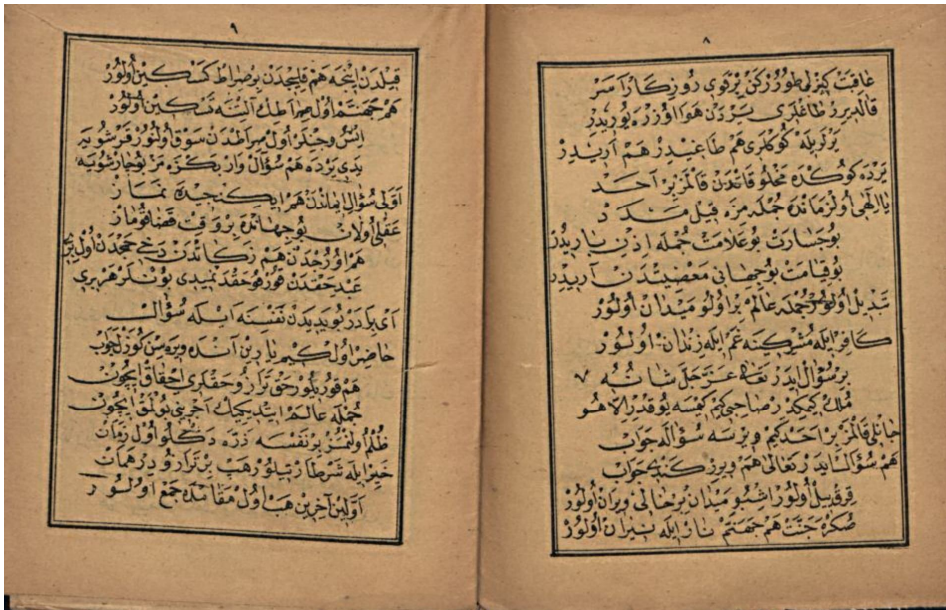 ٨
عاقبت بكزلی طورزكن پرتوی روزكار آسر
قالدیرر طاغلری یردن هوا اوزره یوریدر
یرلریله كوكلری هم طاغیدر هم آریدر
یرده كوكده مخلوقاتدن قالمز بر آحد
یا الهی اول زمانده جمله مزه قیل مدد
بو جسارت بو علامت جمله اذن یاریدر
بو قیامت بو جهانی معصیتدن آریدر
تبدیل اولور جمله عالم بر اولو میدان اولور
كافر ایله مشركینه غم ایله زندان اولور
بر سؤال ایدر تعالی عز جل شانه
ملك كیمكدر صاحبی كیم كیمسه یوقدر الا هو
جانلی قالمز بر احد كیم ویرسه سؤاله جواب
هم سؤال ایدر تعالی هم ویرر كندی جواب
قرق ییل اولور اشبو میدان بر خالی ویران اولور
صكره جنت هم جهنم نار ایله نیران اولور
٩
قیلدن اینجه هم قلیجدن بو صراط كسكین اولور
هم جهنم اول صراطك آلتنه تسكین اولور
انس و جنلر اول صراطدن سوق اولنور قرشویه
یدی یرده هم سؤال وار بكزه مز بو چارشویه
اولی سؤال ایماندن هم ایكنجیده نماز
عقلی اولان بو جهانده بر وقت قضا قوماز
هم اوروجدن هم زكاتدن دخی حجدن اول بری
عبد حقدن قورهو حقدنمیدی بونلر هر بری
ای برادر بو یدیدن نفسنه ایله سؤال
حاضر اول كیم یارین آنده ویره سن كوزل جواب
هم قوریلور حق ترازو حقلری احقاق ایچون
جمله عالم ایتدیكینك آجرینی بولمق ایچون
ظلم اولنمز بر نفسه ذره دكلو اول زمان
خیر ایله شر طارتیلور هپ بر ترازو در همان
اولین آخرین هپ اول مقامده جمع اولور